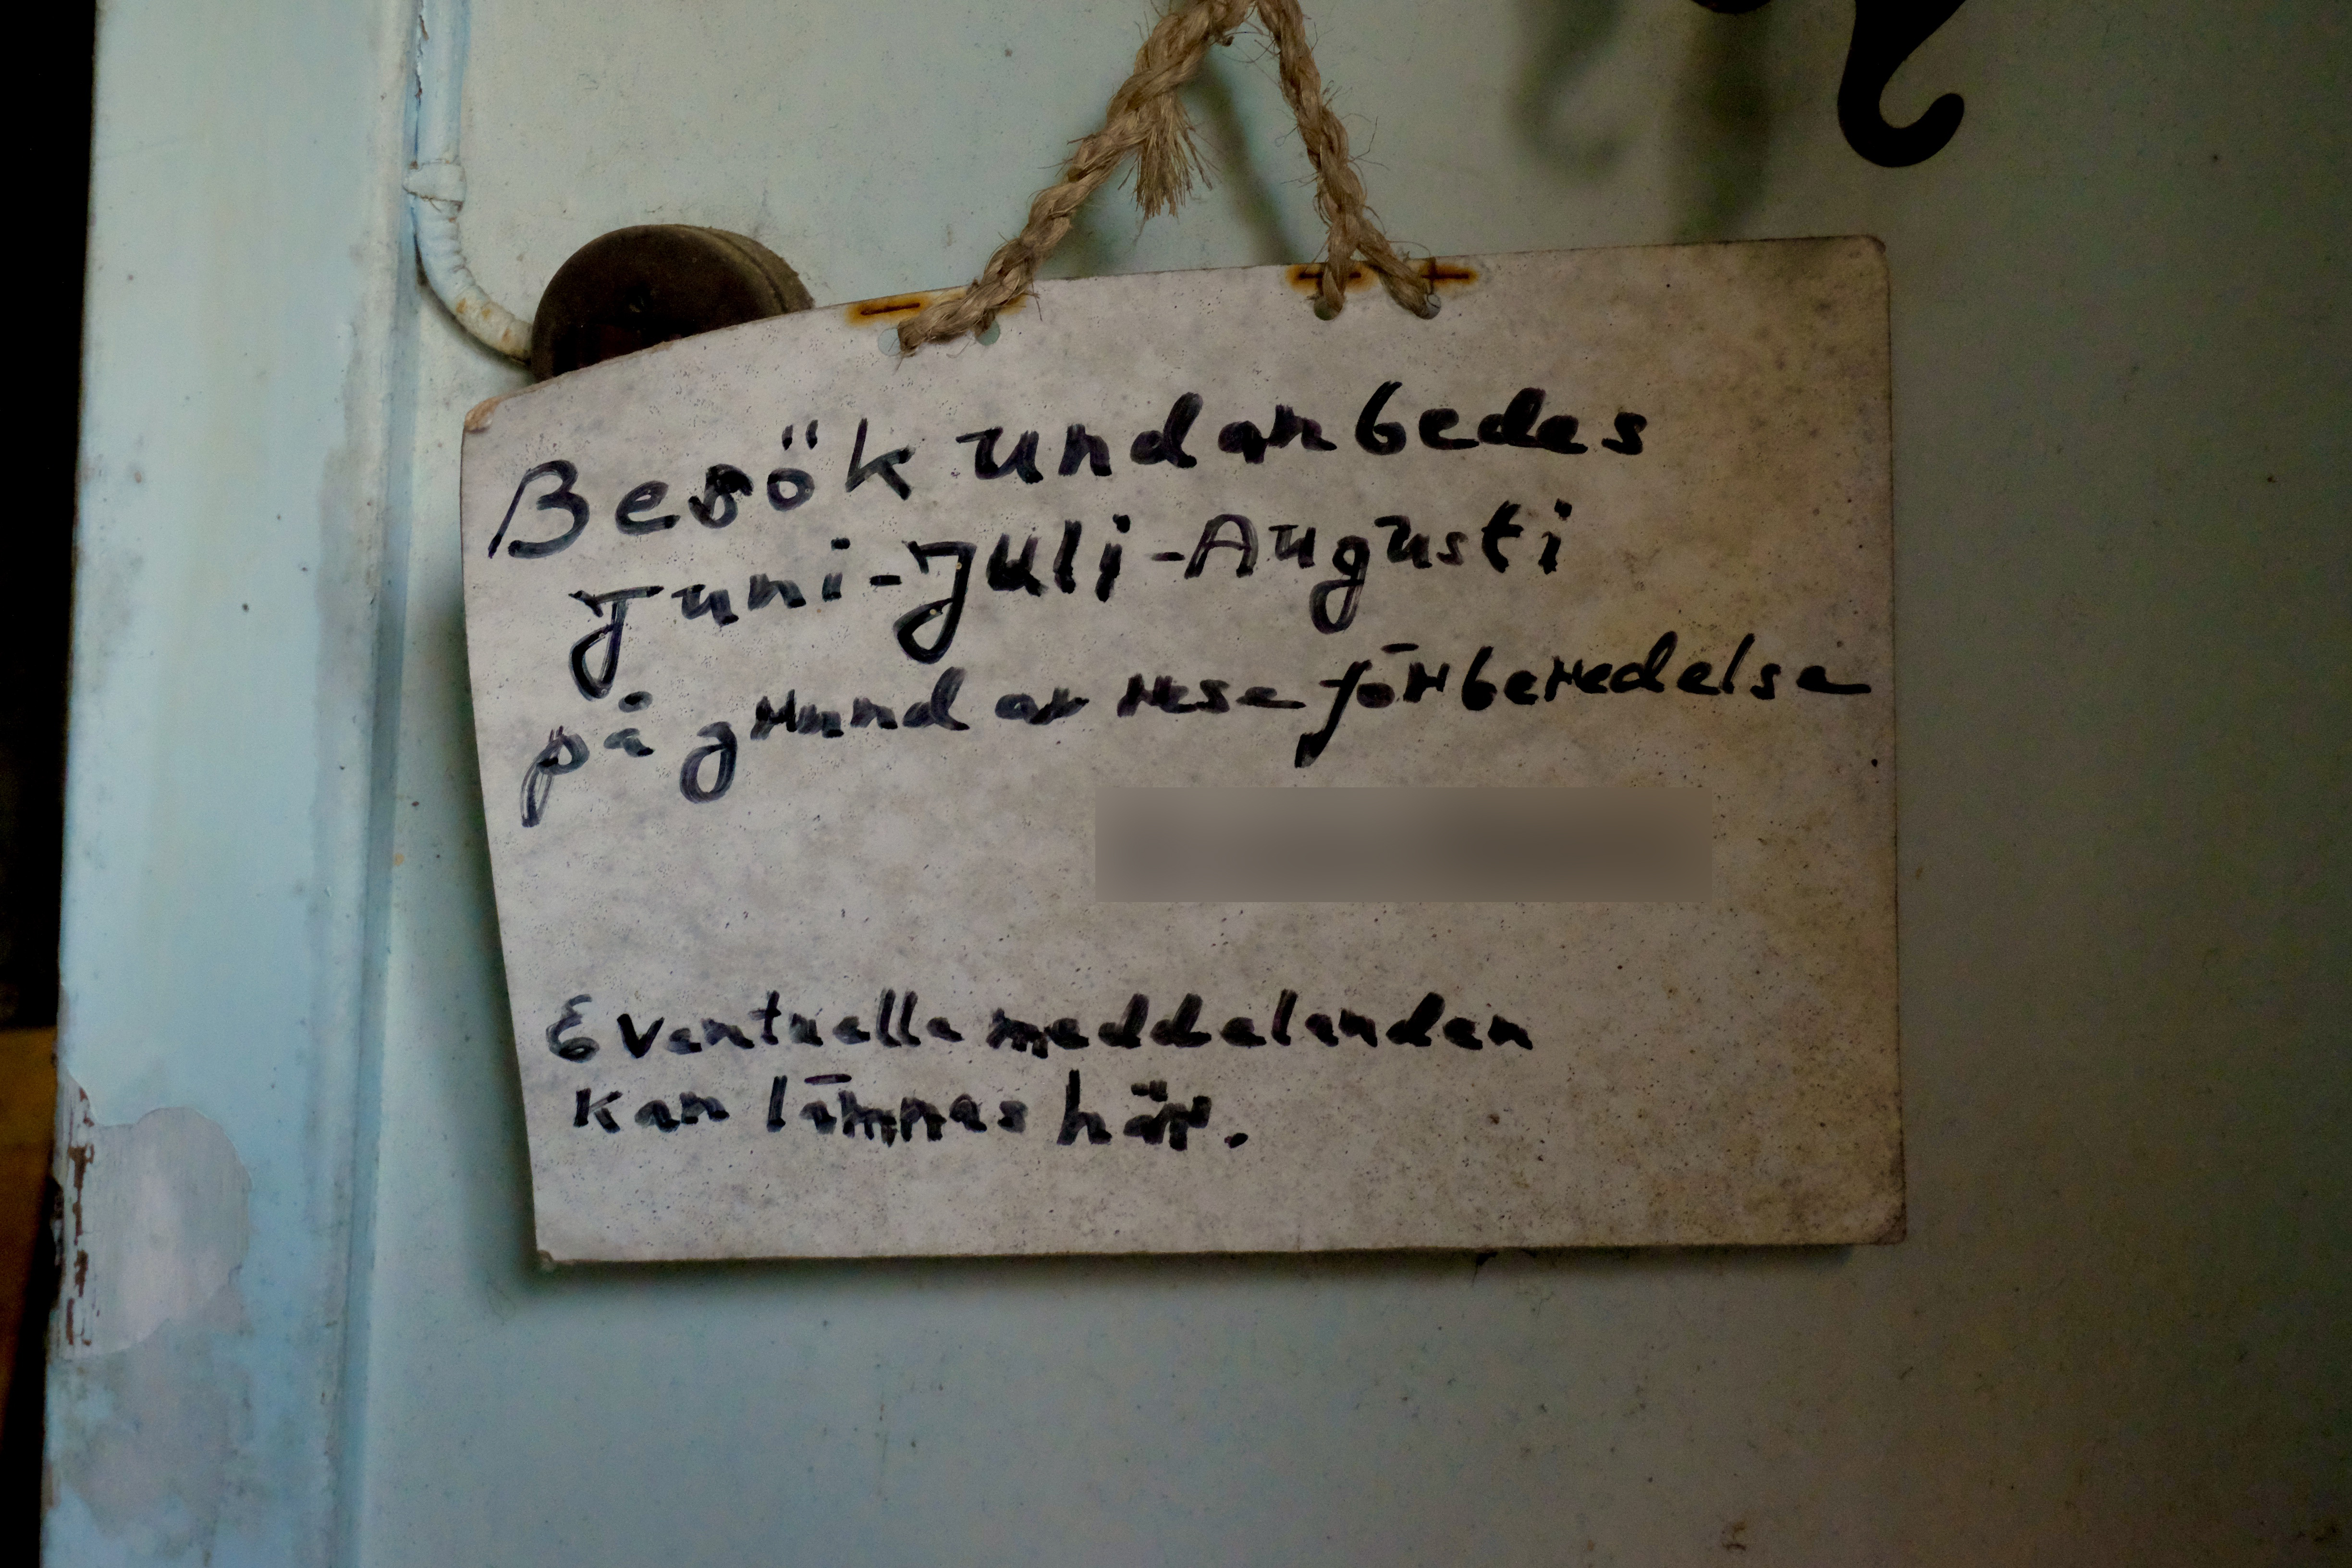 Besök undanbedes
Juni-Juli-Augusti
på grund av reseförberedelse
Eventuella meddelanden
kan lämnas här.